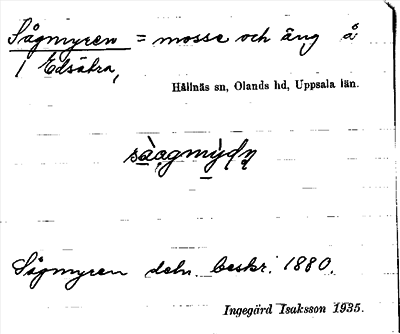 Sågmyren = mosse och äng å
i Edsåkra,
Hållnäs sn, Olands hd, Uppsala län.
Sågmyren deln. beskr. 1880.
Ingegärd Isaksson 1935.